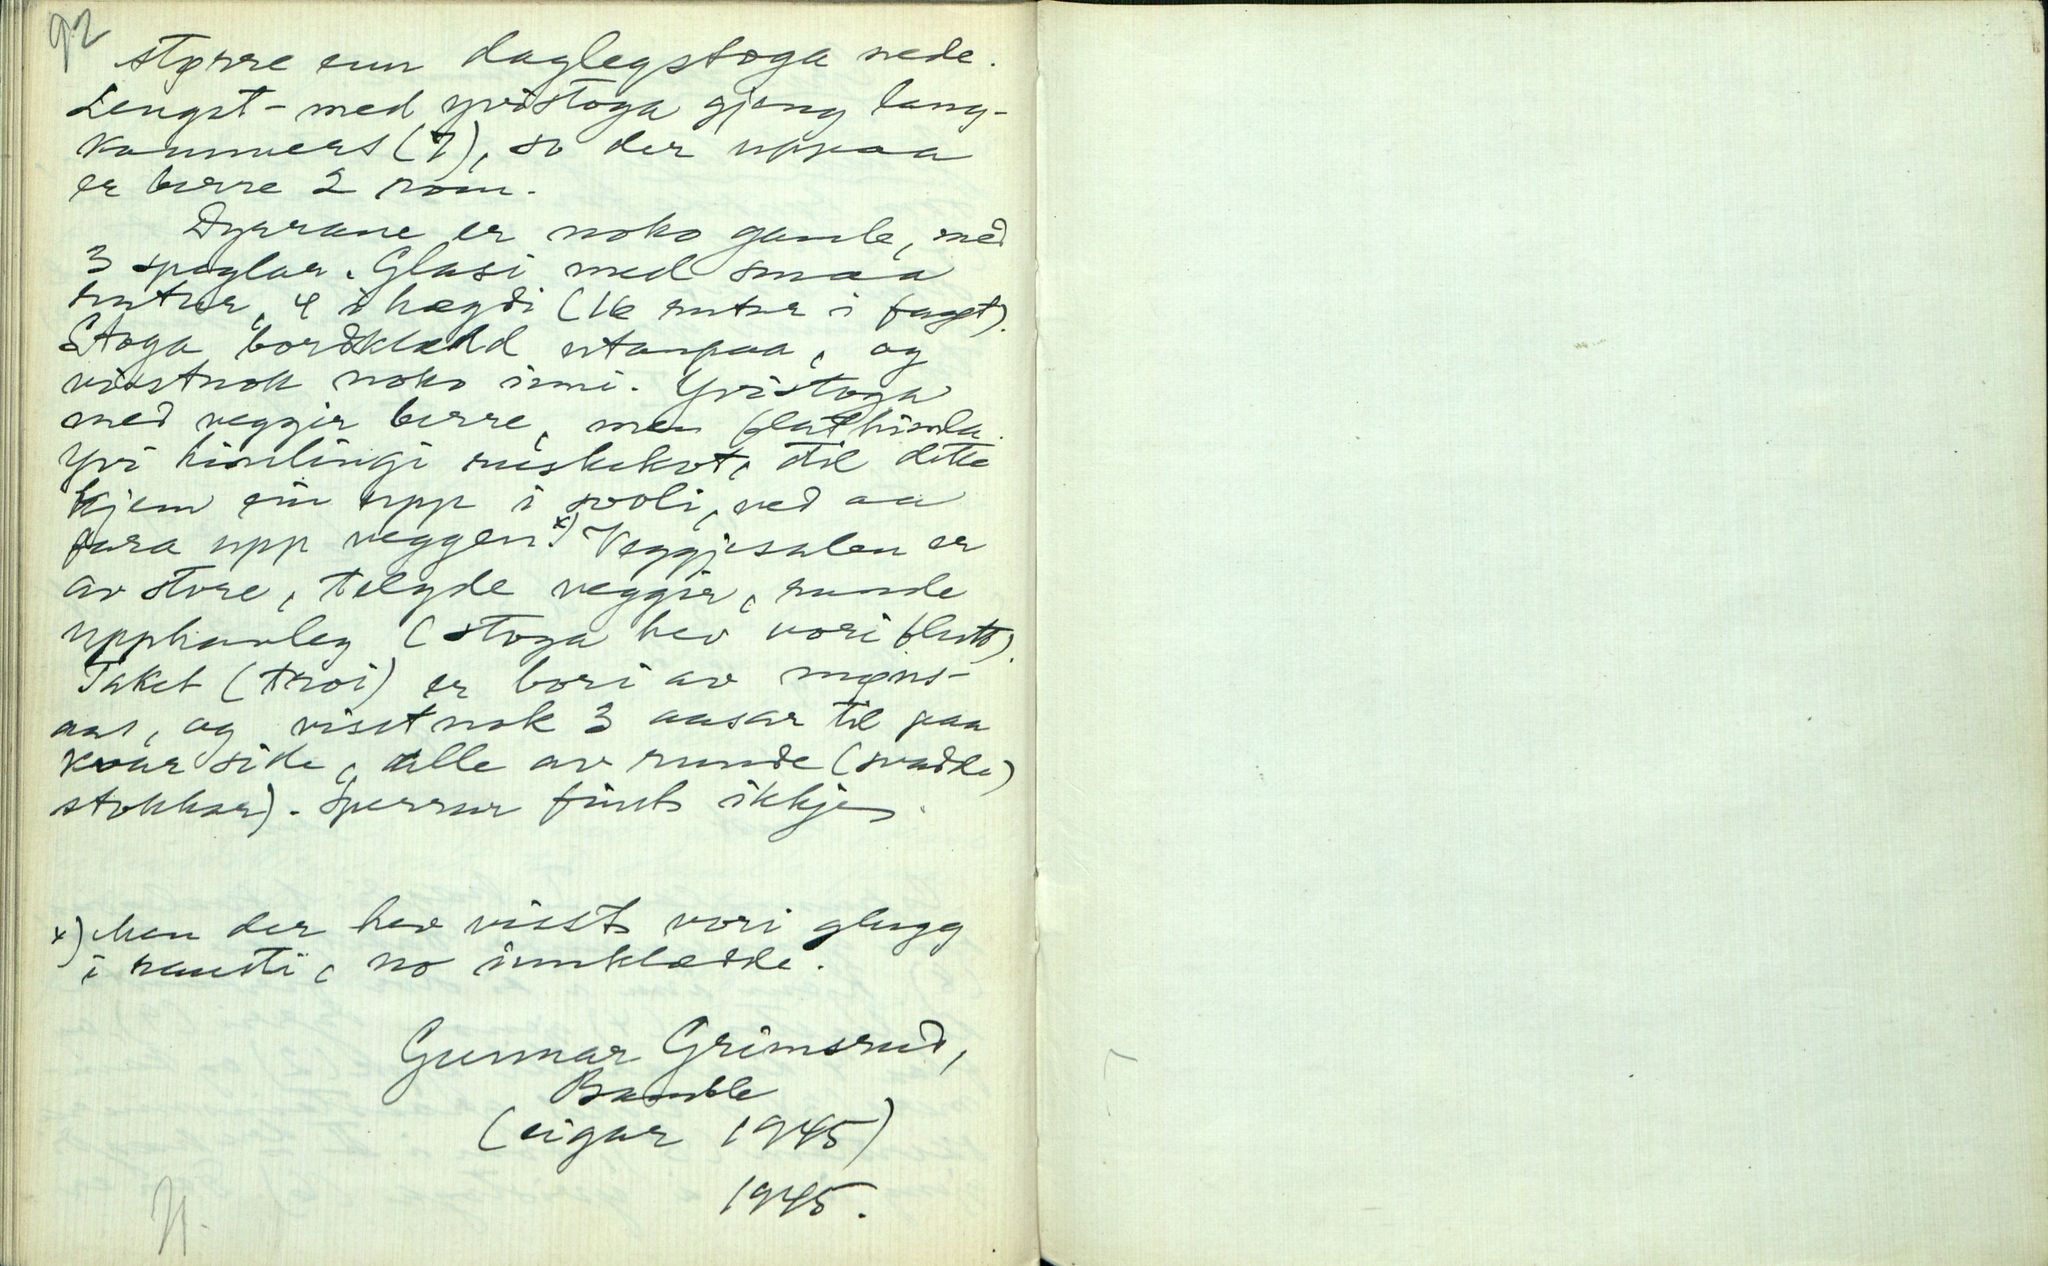 92
større enn daglegstoga nede.
Lengst med yvistoga gjeng lang-
kammers (7), so der uppaa
er berre 2 rom.
Dyrrane er noko gamle, med
3 speglar. Glasi med smaa
rutur, 4 i høgdi (16 rutur i faget).
Stoga bordklædd utanpaa, og
visstnok noko inni. Yvistoga
med veggir berre, men flathimla.
Yvi himlingi ruskekot, til dette
kjem ein upp i svoli, ved aa
fara upp veggen. x) Veggjesalen er
av store, telgde veggir, runde
upphavleg (stoga hev vori flutt).
Taket (troi) er bori av møns-
aas, og visstnok 3 aasar til paa
kvar side, alle av runde (svadde)
stokkar). Sperrur finst ikkje.
x) Men der hev visst vori glugg
i rausti, no innklædde.
Gunnar Grimsrud,
Bamble
(eigar 1945)
1945.